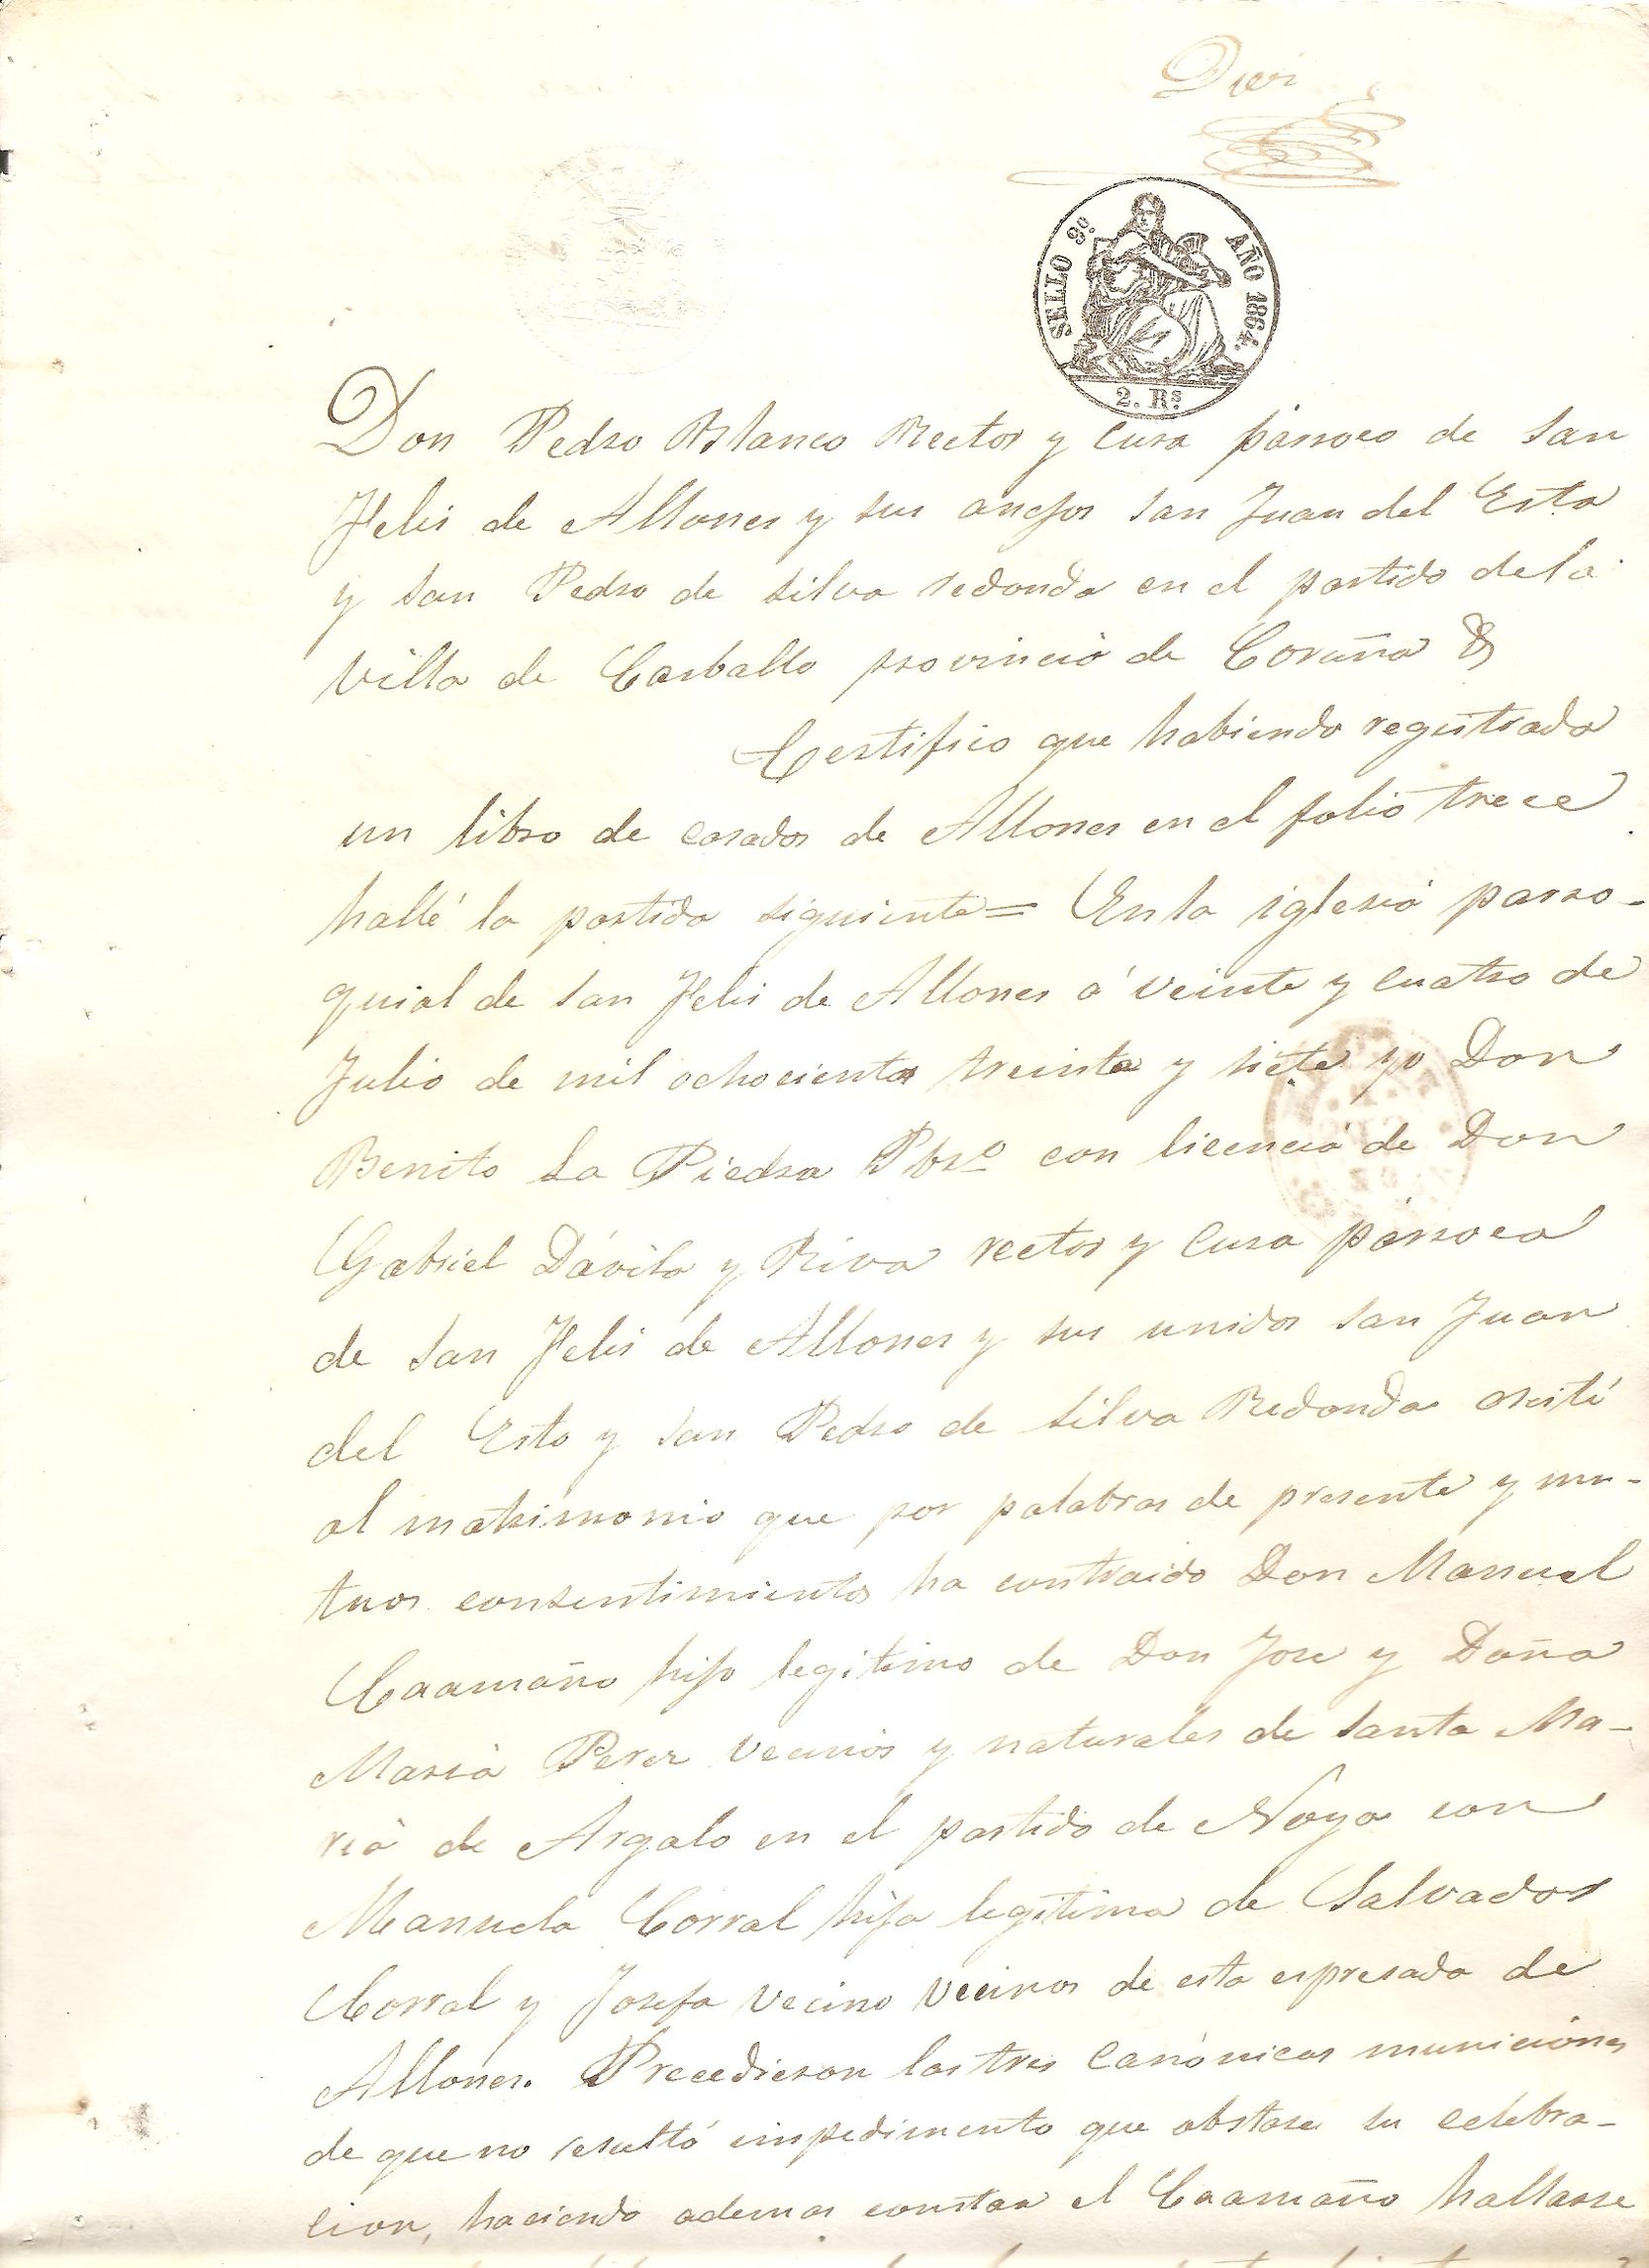 Diez
SELLO 9º. AÑO 1864.
2. Rˢ
Don Pedro Blanco Rector y Cura párroco de San
Felis de Allones y sus anejos San Juan del Esto
y San Pedro de Silva redonda en el partido de la
Villa de Carballo provincia de Coruña &
Certifico que habiendo registrado
un libro de casados de Allones en el folio trece
hallé la partida siguiente= En la iglesia parro-
quial de San Felis de Allones á veinte y cuatro de
Julio de mil ochocientos treinta y siete yo Don
Benito La Piedra Pbrº con licencia de Don
Gabriel Dávila y Riva rector y Cura párroco
de San Felis de Allones y sus unidos San Juan
del Esto y San Pedro de Silva Redonda asistí
al matrimonio que por palabras de presente y mu-
tuos consentimientos ha contraido Don Manuel
Caamaño hijo legitimo de Don Jose y Doña
Maria Perez vecinos y naturales de Santa Ma-
ria de Argalo en el partido de Noya con
Manuela Corral hija legitima de Salvador
Corral y Josefa Vecino vecinos de esta espresada de
Allones. Precedieron las tres canónicas municiones
de que no resultó impedimento que obstase su celebra-
cion, haciendo ademas constar el Caamaño hallarse